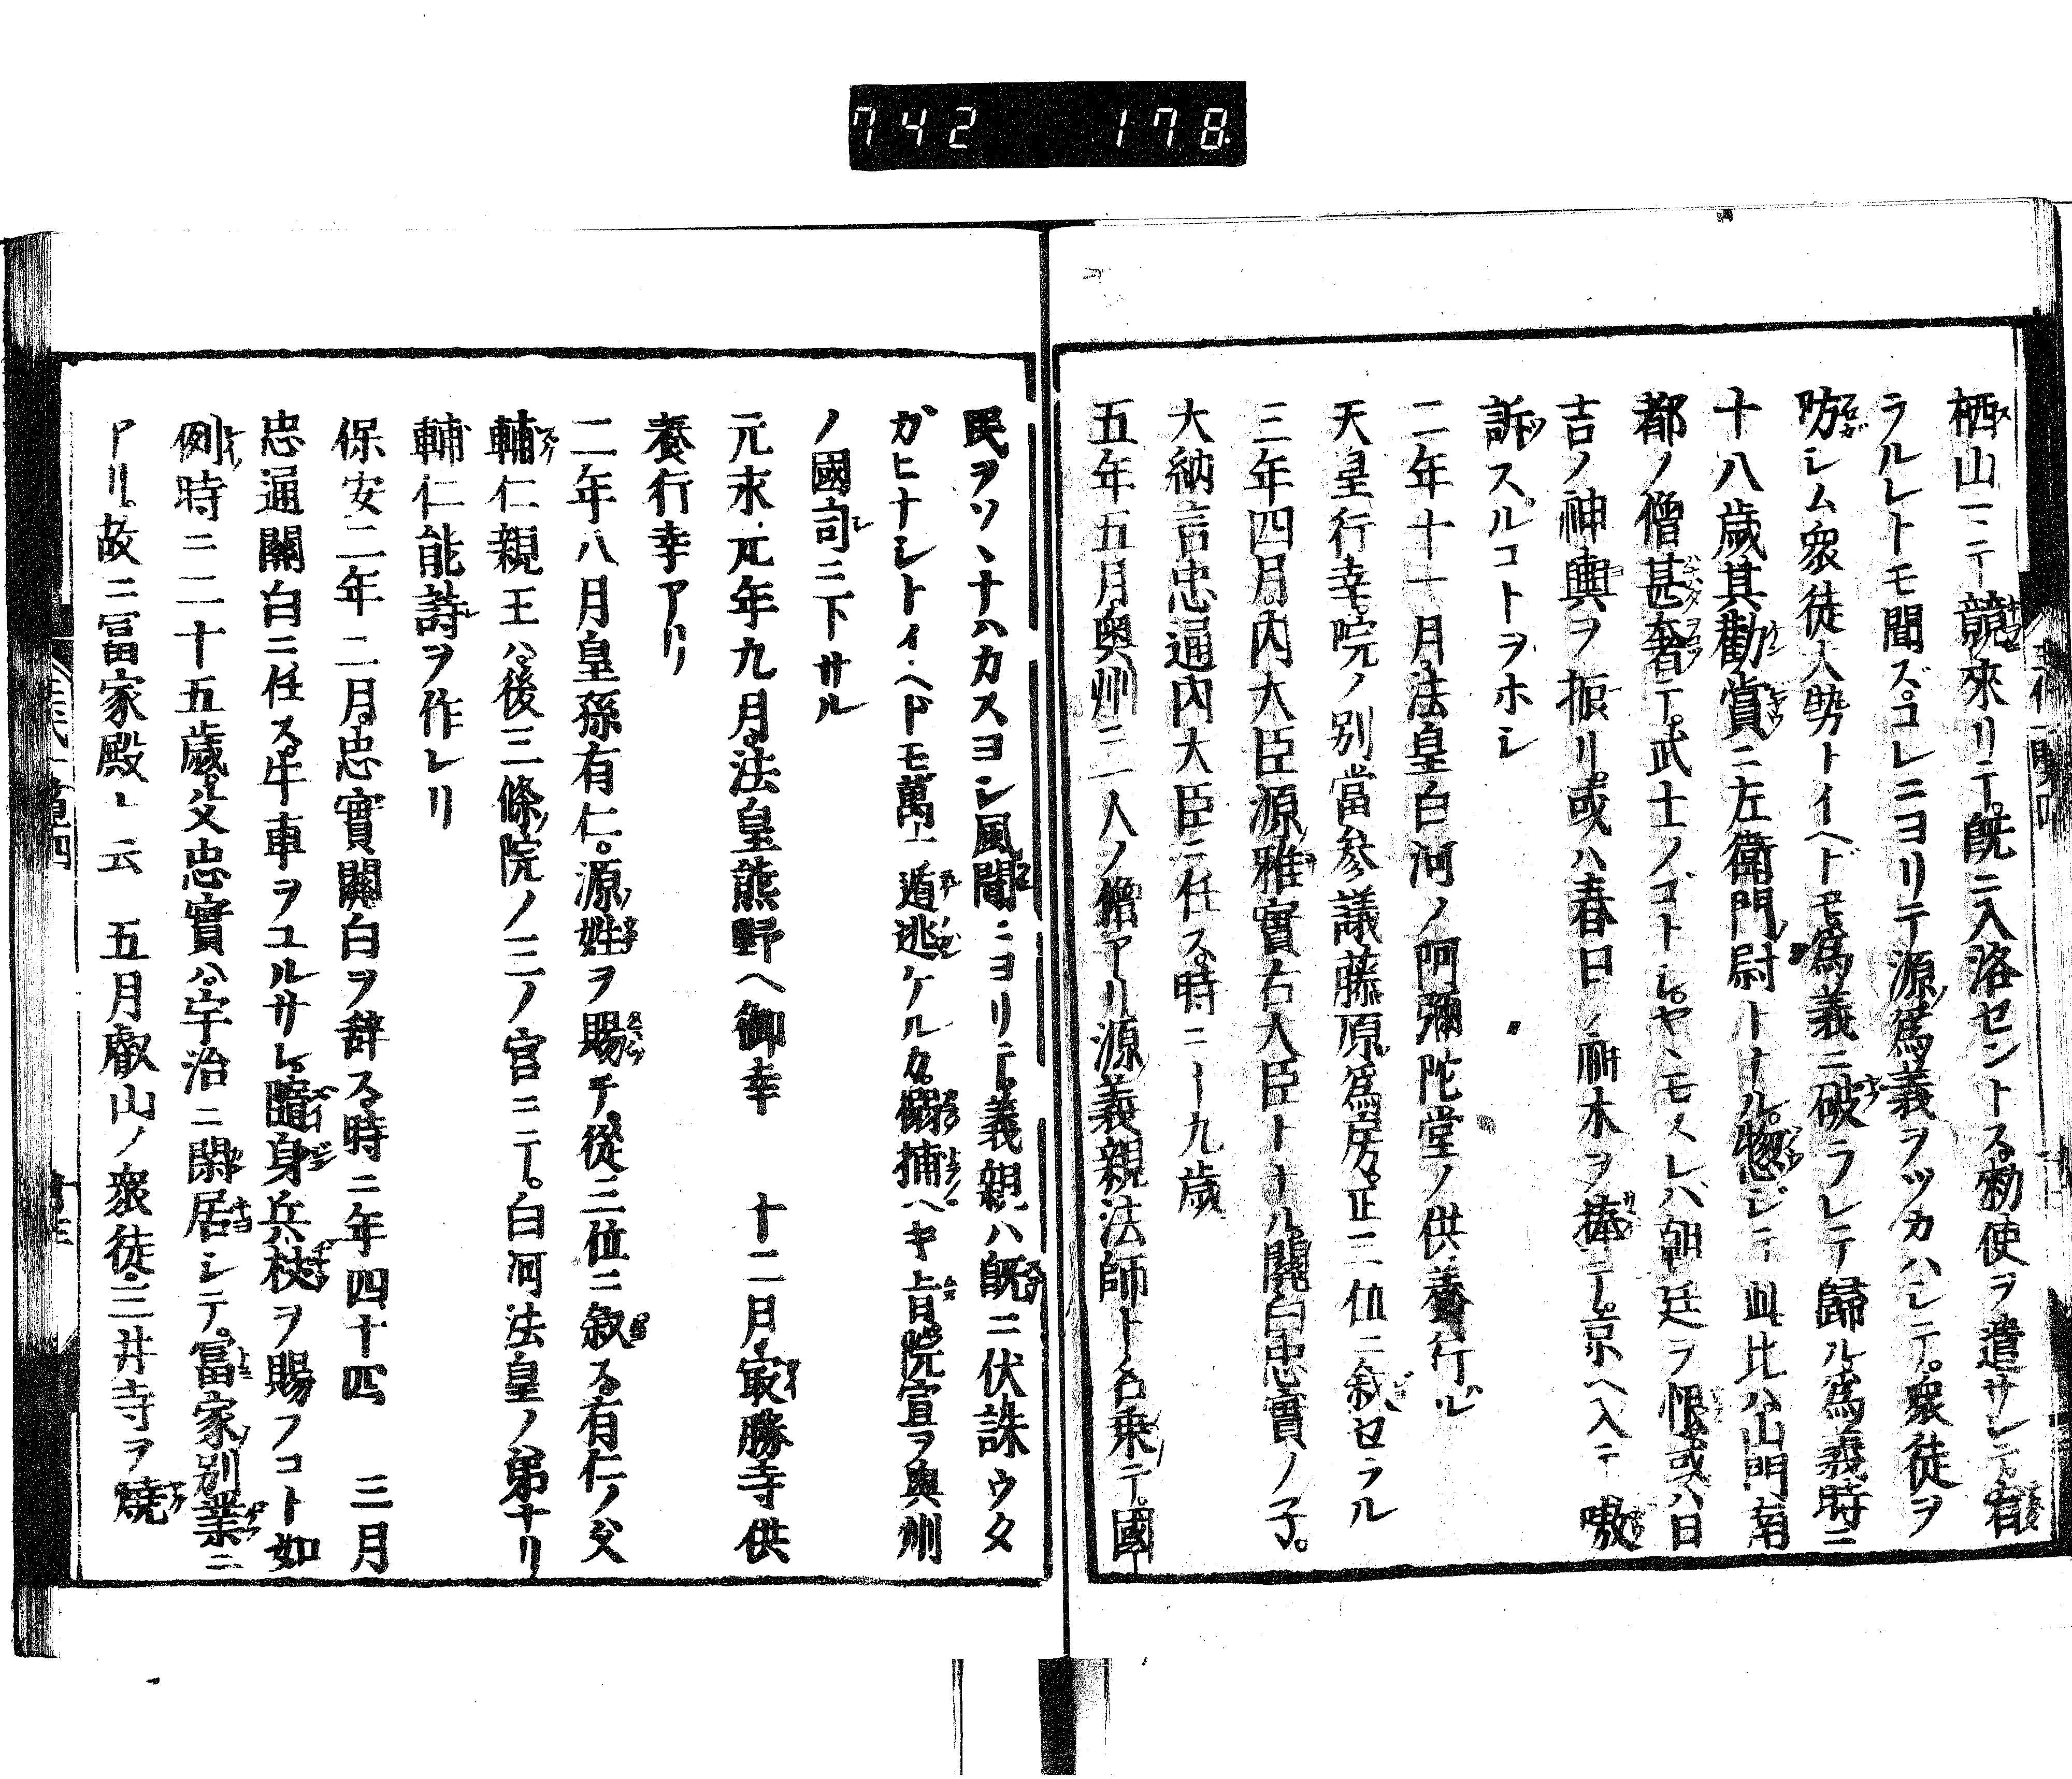 742 178
栖山ニテ競來リテ。既ニ入洛セントス。勅使ヲ遣サレテ。宥
ラルレトモ聞ズ。コレニヨリテ源爲義ヲツカハシテ。衆徒ヲ
防シム衆徒大勢トイヘドモ。爲義ニ破ラレテ歸ル爲義時ニ
十八歲其勸賞ニ左衛門尉トナル。惣ジテ此比ハ山門南
都ノ僧甚奢テ。武士ノゴトシ。ヤヽモスレバ朝廷ヲ恨。或ハ日
吉ノ神輿ヲ振リ。或ハ春日ノ神木ヲ捧テ。京ヘ入テ嗷
訴スルコトヲホシ
二年十一月。法皇白河ノ阿彌陀堂ノ供養行ル
天皇行幸。院ノ別當參議藤原爲房。正三位ニ敘セラル
三年四月。內大臣源雅實右大臣トナル。關白忠實ノ子。
大納言忠通內大臣ニ任ス。時ニ十九歲
五年五月。奧州ニ一人ノ僧アリ源義親法師ト名乗テ。國
民ヲソヽナハカスヨシ風聞ニヨリテ。義親ハ既ニ伏誅ウタ
ガヒナシトイヘドモ萬一遁逃ケルカ。搦捕ヘキ旨。院宣ヲ奧州
ノ國司ニ下サル
元永元年九月。法皇熊野ヘ御幸 十二月。冣勝寺供
養行幸アリ
二年八月皇孫有仁。源姓ヲ賜テ。從三位ニ敘ス。有仁ノ父
輔仁親王ハ。後三條院ノ三ノ宮ニテ。白河法皇ノ弟ナリ
輔仁能詩ヲ作レリ
保安二年二月。忠實關白ヲ辞ス。時ニ年四十四 三月
忠通關白ニ任ス。牛車ヲユルサレ。隨身兵杖ヲ賜フコト如
例時ニ二十五歲。父忠實ハ。宇治ニ閑居シテ。富家別業ニ
アリ。故ニ富家殿ト云 五月叡山ノ衆徒。三井寺ヲ燒